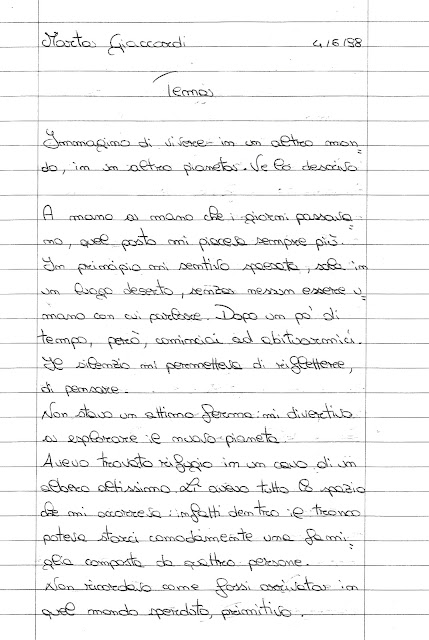 Marta Giaccardi 4/6/98
Tema
Immagino di vivere in un altro mon=
do, in un altro pianeta. Ve lo descrivo
A mano a mano che i giorni passava
no, quel posto mi piaceva sempre più.
In principio mi sentivo spaesata, sola in
un luogo deserto, senza nessun essere u
mano con cui parlare. Dopo un po' di
tempo, però, cominciai ad abituarmici.
Il silenzio mi permetteva di riflettere,
di pensare.
Non stavo un attimo ferma: mi divertivo
a esplorare il nuovo pianeta.
Avevo trovato rifugio in un cavo di un
albero altissimo. Lì avevo tutto lo spazio
che mi occorreva: infatti dentro il tronco
poteva starci comodamente una fami=
glia composta da quattro persone.
Non ricordavo come fossi arrivata in
quel mondo sperduto, primitivo.